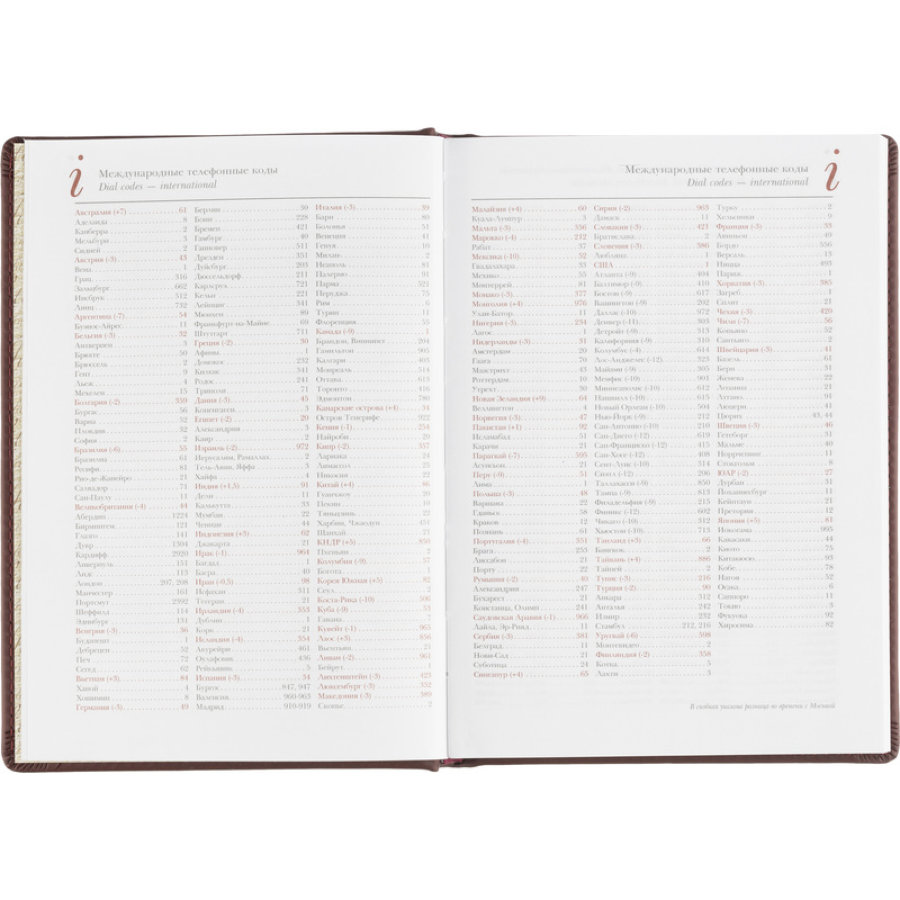 i
Международные телефонные коды
Dial codes — international
Австралия (+7) 61
Аделаида 8
Канберра 2
Мельбурн 3
Сидней 2
Австрия (-3) 43
Вена 1
Грац 316
Зальцбург 662
Инсбрук 512
Линц 732
Аргентина (-7) 54
Буэнос-Айрес 11
Бельгия (-3) 32
Антверпен 3
Брюгге 50
Брюссель 2
Гент 9
Льеж 4
Мехелен 15
Болгария (-2) 359
Бургас 56
Варна 52
Пловдив 32
София 2
Бразилия (-6) 55
Бразилиа 61
Ресифи 81
Рио-де-Жанейро 21
Салвадор 71
Сан-Паулу 11
Великобритания (-4) 44
Абердин 1224
Бирмингем 121
Глазго 141
Дувр 1304
Кардифф 2920
Ливерпуль 151
Лидс 113
Лондон 207, 208
Манчестер 161
Портсмут 2392
Шеффилд 114
Эдинбург 131
Венгрия (-3) 36
Будапешт 1
Дебрецен 52
Печ 72
Сегед 62
Вьетнам (+3) 84
Ханой 4
Хошимин 8
Германия (-3) 49
Берлин 30
Бонн 228
Бремен 421
Гамбург 40
Ганновер 511
Дрезден 351
Дуйсбург 203
Дюссельдорф 211
Карлсруэ 721
Кельн 221
Лейпциг 341
Мюнхен 89
Франкфурт-на-Майне 69
Штутгарт 711
Греция (-2) 30
Афины 1
Родос 241
Триполи 71
Дания (-3) 45
Копенгаген 3
Египет (-2) 20
Александрия 3
Каир 2
Израиль (-2) 972
Иерусалим, Рамаллах 2
Тель-Авив, Яффа 3
Хайфа 4
Индия (+1,5) 91
Дели 11
Калькутта 33
Мумбаи 22
Ченнаи 44
Индонезия (+3) 62
Джакарта 21
Ирак (-1) 964
Багдад 1
Басра 40
Иран (-0,5) 98
Исфахан 311
Тегеран 21
Ирландия (-4) 353
Дублин 1
Корк 21
Исландия (-4) 354
Акурейри 461
Рейкьявик 5
Испания (-3) 34
Бургос 847, 947
Валенсия 960-963
Мадрид 910-919
Италия (-3) 39
Бари 80
Болонья 51
Венеция 41
Генуя 10
Милан 2
Неаполь 81
Палермо 91
Парма 521
Перуджа 75
Рим 6
Турин 11
Флоренция 55
Канада (-9) 1
Брандон, Виннипег 204
Гамильтон 905
Калгари 403
Монреаль 514
Оттава 613
Торонто 416
Эдмонтон 780
Канарские острова (+4) 34
Остров Тенерифе 922
Кения (-1) 254
Найроби 20
Кипр (-2) 357
Ларнака 24
Лимассол 25
Никосия 22
Китай (+4) 86
Гуанчжоу 20
Пекин 10
Тяньцзинь 22
Харбин, Чжаодун 451
Шанхай 21
КНДР (+5) 850
Пхеньян 2
Колумбия (-9) 57
Богота 1
Корея Южная (+5) 82
Сеул 2
Коста-Рика (-10) 506
Куба (-9) 53
Гавана 7
Кувейт (-1) 965
Лаос (+3) 856
Вьентьян 21
Ливан (-2) 961
Бейрут 1
Лихтенштейн (-3) 423
Люксембург (-3) 352
Македония (-3) 389
Скопье 2
Международные телефонные коды
Dial codes — international
i
Малайзия (+4) 60
Куала-Лумпур 3
Мальта (-3) 356
Марокко (-4) 212
Рабат 37
Мексика (-10) 52
Гвадалахара 33
Мехико 55
Монтеррей 81
Монако (-3) 377
Монголия (+4) 976
Улан-Батор 11
Нигерия (-3) 234
Лагос 1
Нидерланды (-3) 31
Амстердам 20
Гаага 70
Маастрихт 43
Роттердам 10
Утрехт 30
Новая Зеландия (+9) 64
Веллингтон 4
Норвегия (-3) 47
Пакистан (+1) 92
Исламабад 51
Карачи 21
Парагвай (-7) 595
Асунсьон 21
Перу (-9) 51
Лима 1
Польша (-3) 48
Варшава 22
Гданьск 58
Краков 12
Познань 61
Португалия (-4) 351
Брага 253
Лиссабон 21
Порту 22
Румыния (-2) 40
Александрия 247
Бухарест 21
Констанца, Олимп 241
Саудовская Аравия (-1) 966
Лайла, Эр-Рияд 11
Сербия (-3) 381
Белград 11
Нови-Сад 21
Суботица 24
Сингапур (+4) 65
Сирия (-2) 963
Дамаск 11
Словакия (-3) 421
Братислава 2
Словения (-3) 386
Любляна 1
США 1
Атланта (-9) 404
Балтимор (-9) 410
Бостон (-9) 617
Вашингтон (-9) 202
Даллас (-10) 972
Денвер (-11) 303
Детройт (-9) 313
Калифорния (-9) 310
Колумбус (-9) 614
Лос-Анджелес (-12) 323
Майами (-9) 305
Мемфис (-10) 901
Миннеаполис (-10) 612
Нашвилл (-10) 615
Новый Орлеан (-10) 504
Нью-Йорк (-9) 212
Сан-Антонио (-10) 210
Сан-Диего (-12) 619
Сан-Франциско (-12) 415
Сан-Хосе (-12) 408
Сент-Луис (-10) 314
Сиэтл (-12) 206
Таллахасси (-9) 850
Тампа (-9) 813
Филадельфия (-9) 215
Финикс (-12) 602
Чикаго (-10) 312
Хьюстон (-10) 713
Таиланд (+3) 66
Бангкок 2
Тайвань (+4) 886
Тайпей 2
Тунис (-3) 216
Турция (-2) 90
Анкара 312
Анталья 242
Измир 232
Стамбул 212, 216
Уругвай (-6) 598
Монтевидео 2
Финляндия (-2) 358
Котка 5
Лахти 3
Турку 2
Хельсинки 9
Франция (-3) 33
Авиньон 49
Бордо 556
Версаль 13
Ницца 493
Париж 1
Хорватия (-3) 385
Загреб 1
Сплит 21
Чехия (-3) 420
Чили (-7) 56
Кокимбо 52
Сантьяго 2
Швейцария (-3) 41
Базель 61
Берн 31
Женева 22
Лозанна 21
Лугано 91
Люцерн 41
Цюрих 43, 44
Швеция (-3) 46
Гетеборг 31
Мальме 40
Норрчепинг 11
Стокгольм 8
ЮАР (-2) 27
Дурбан 31
Йоханнесбург 11
Кейптаун 21
Претория 12
Япония (+5) 81
Иокогама
Кавасаки 44
Киото 75
Китакюсю 93
Кобе 78
Нагоя 52
Осака 6
Саппоро 11
Токио 3
Фукуока 92
Хиросима 82
В скобках указана разница во времени с Москвой